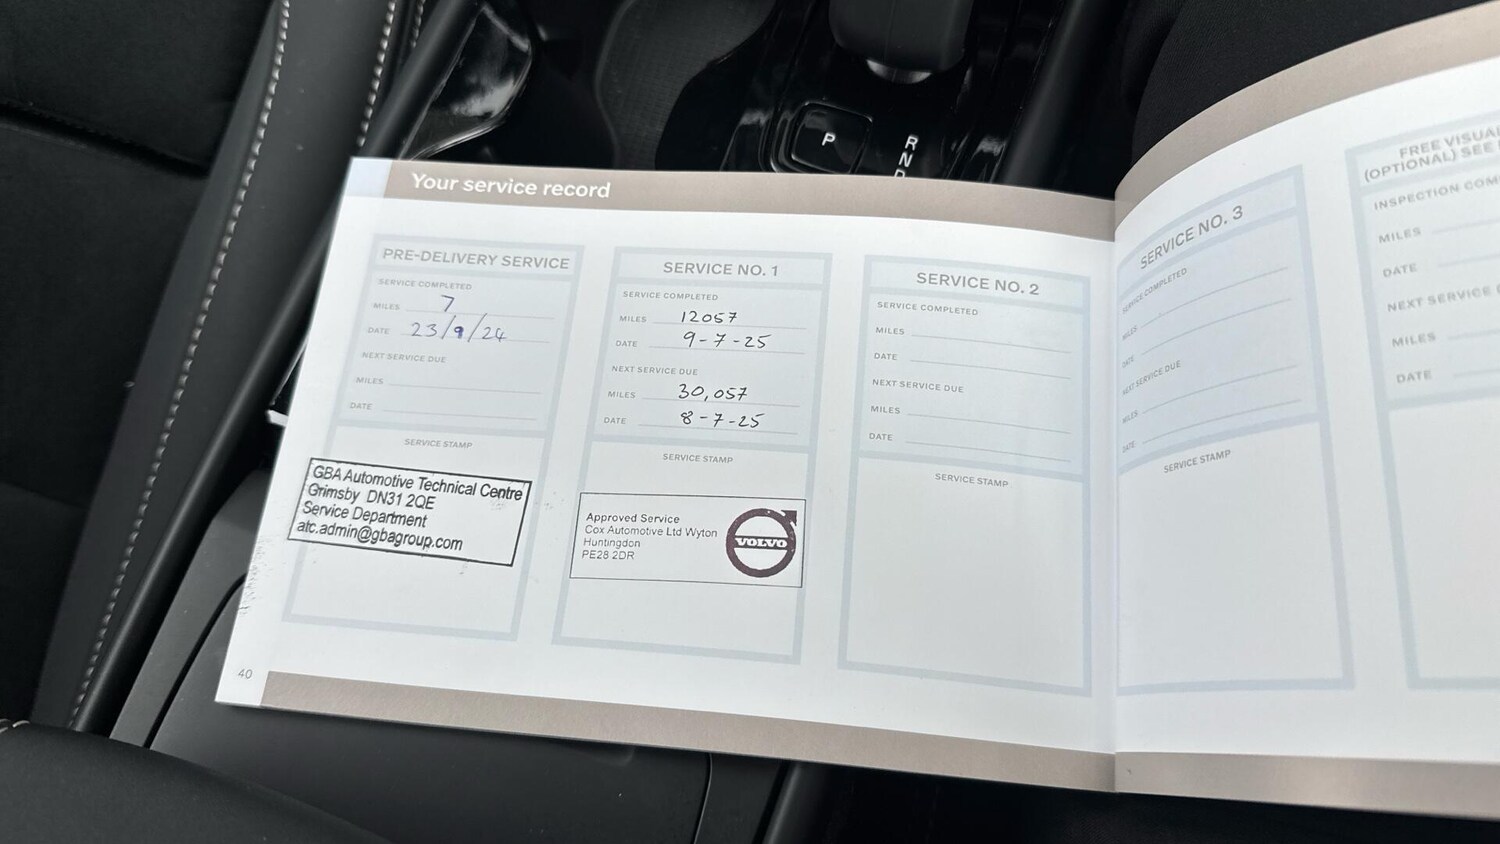 P
R
N
D
Your service record
PRE-DELIVERY SERVICE
SERVICE COMPLETED
MILES 7
DATE 23/9/24
NEXT SERVICE DUE
MILES
DATE
SERVICE STAMP
GBA Automotive Technical Centre
Grimsby DN31 2QE
Service Department
atc.admin@gbagroup.com
40
SERVICE NO. 1
SERVICE COMPLETED
MILES 12057
DATE 9-7-25
NEXT SERVICE DUE
MILES 30,057
DATE 8-7-25
SERVICE STAMP
Approved Service
Cox Automotive Ltd Wyton
Huntingdon
PE28 2DR
VOLVO
SERVICE NO. 2
SERVICE COMPLETED
MILES
DATE
NEXT SERVICE DUE
MILES
DATE
SERVICE STAMP
SERVICE NO. 3
SERVICE COMPLETED
MILES
DATE
NEXT SERVICE DUE
MILES
DATE
SERVICE STAMP
FREE VISUAL
(OPTIONAL) SEE
INSPECTION COM
MILES
DATE
NEXT SERVICE
MILES
DATE